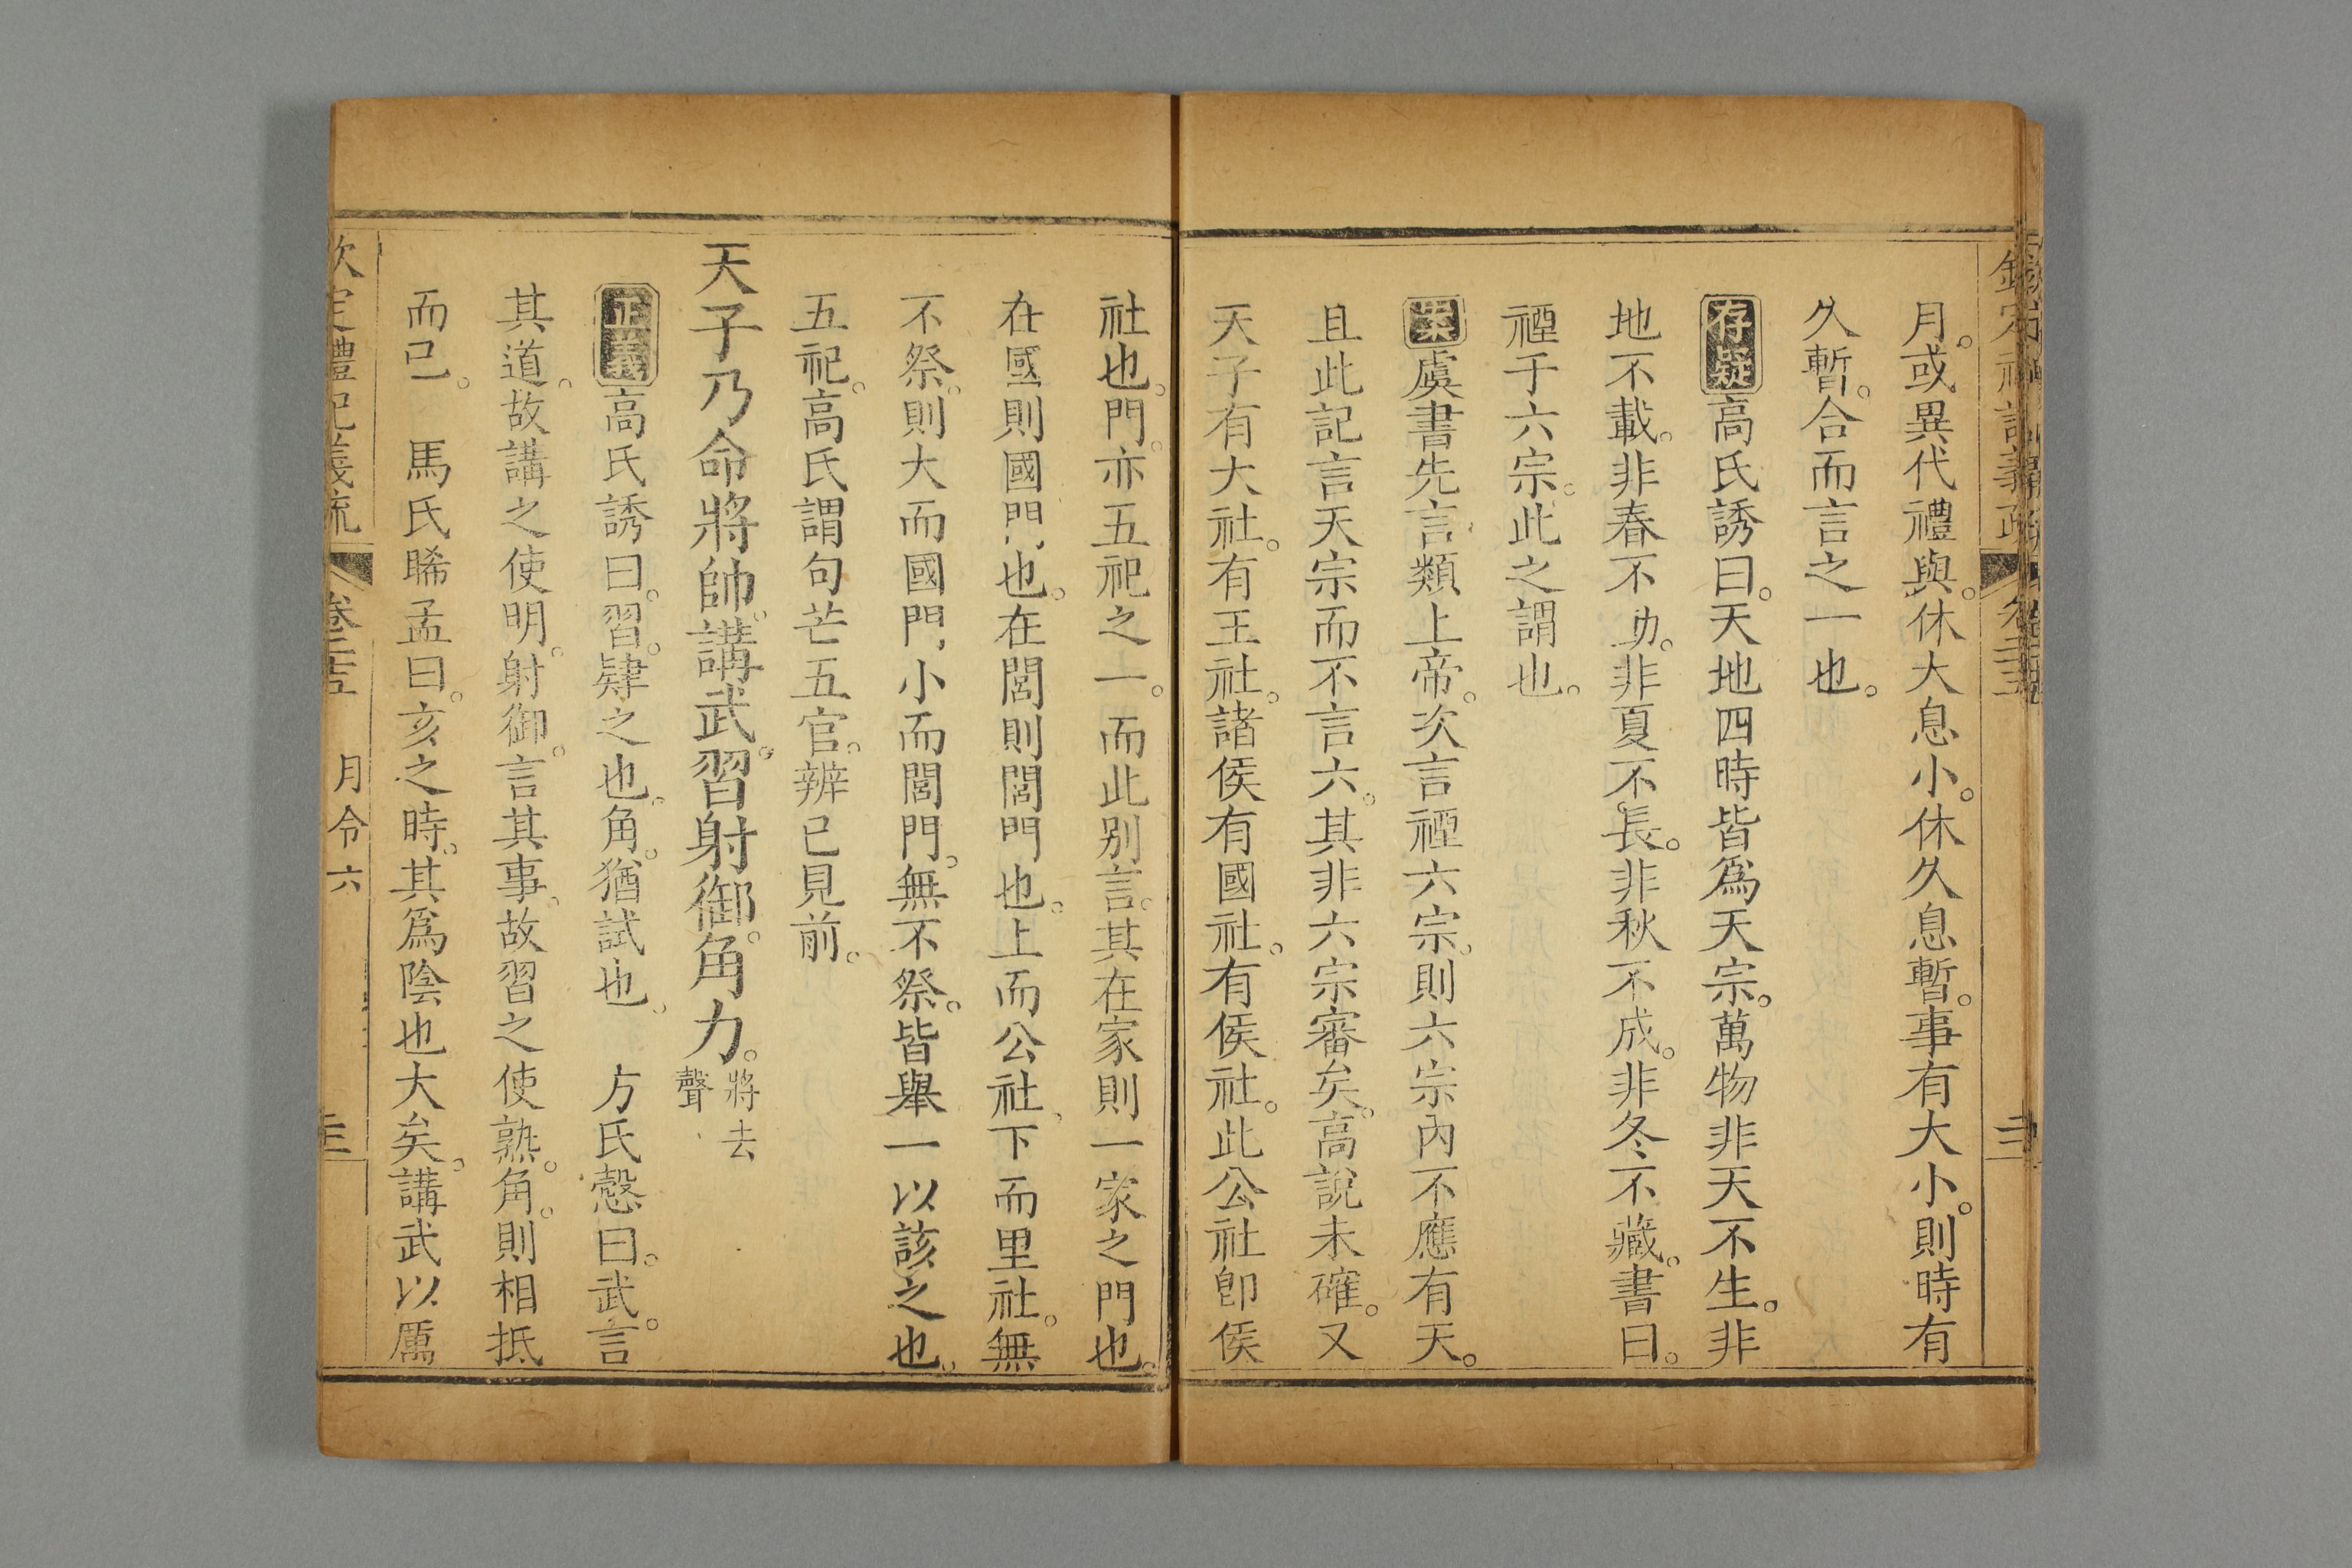 月。或異代禮與。休大息小。休久息暫。事有大小。則時有
久暫。合而言之一也。
存疑高氏誘曰。天地四時皆爲天宗。萬物非天不生。非
地不載。非春不動。非夏不長。非秋不成。非冬不藏。書曰。
禋于六宗。此之謂也。
案虞書先言類上帝。次言禋六宗。則六宗內不應有天。
且此記言天宗而不言六。其非六宗審矣。高說未確。又
天子有大社。有王社。諸侯有國社。有侯社。此公社卽侯
社也。門。亦五祀之一。而此別言。其在家則一家之門也。
在國則國門也。在閭則閭門也。上而公社、下而里社。無
不祭。則大而國門、小而閭門。無不祭。皆舉一以該之也。
五祀。高氏謂句芒五官。辨已見前。
天子乃命將帥。講武。習射御。角力。
將去
聲、
正義高氏誘曰。習。肄之也。角。猶試也、　方氏慤曰。武。言
其道。故講之使明。射御。言其事。故習之使熟。角。則相抵
而已。　馬氏睎孟曰。亥之時。其爲陰也大矣。講武以厲
欽定禮記義疏
月令六